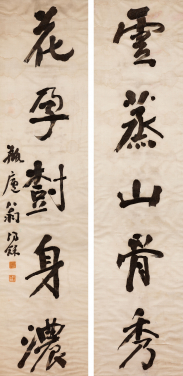 雲蒸山骨秀
花孕樹身濃
瓶庵翁同龢